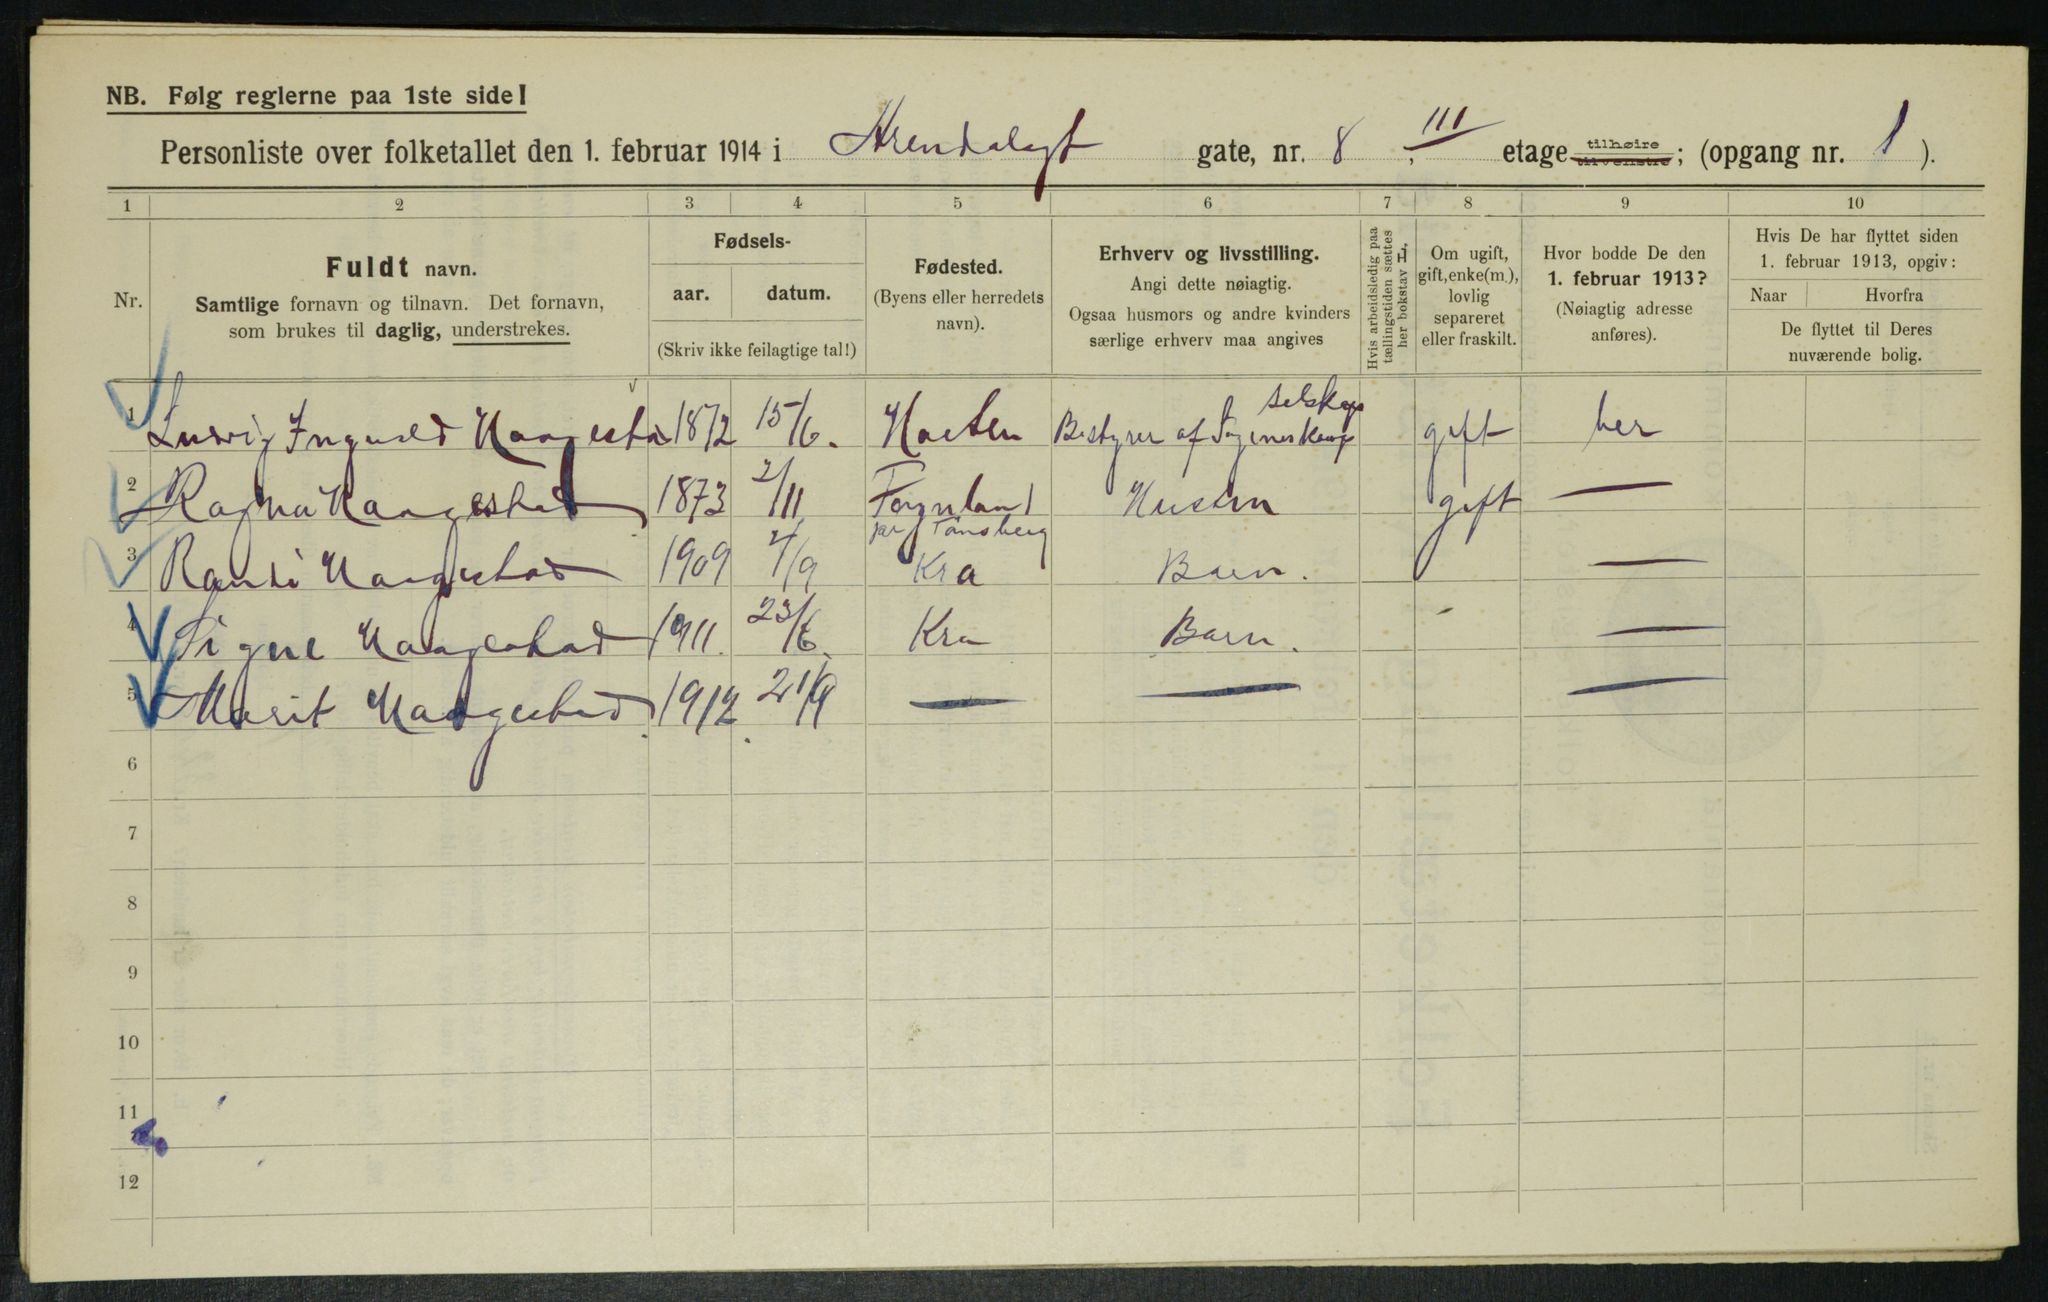 NB. Følg reglerne paa 1ste side!
Personliste over folketallet den 1. februar 1914 i Arendalsgt gate, nr. 8, III etage tilhøire tilvenstre; (opgang nr. 1).
1 2 3 4 5 6 7 8 9 10
Nr.
Fuldt navn.
Samtlige fornavn og tilnavn. Det fornavn,
som brukes til daglig, understrekes.
Fødsels-
aar. datum.
(Skriv ikke feilagtige tal!)
Fødested.
(Byens eller herredets
navn).
Erhverv og livsstilling.
Angi dette nøiagtig.
Ogsaa husmors og andre kvinders
særlige erhverv maa angives
Hvis arbeidsledig paa
tællingstiden sættes
her bokstav L.
Om ugift,
gift, enke(m.),
lovlig
separeret
eller fraskilt.
Hvor bodde De den
1. februar 1913?
(Nøiagtig adresse
anføres).
Hvis De har flyttet siden
1. februar 1913, opgiv:
Naar Hvorfra
De flyttet til Deres
nuværende bolig.
1 Ludvig Ingvald Haagestad 1872 15/6. Bestyrer af gift her
2 Ragna Haagestad 1873 2/11 Føynland Hustru gift —
par Tønsberg
3 Randi Haagestad 1909 4/9 Kra Barn. —
4 Signe Haagestad 1911. 23/6. Kra Barn. —
5 Marit Haagestad 1912 21/9 — — —
6
7
8
9
10
11
12